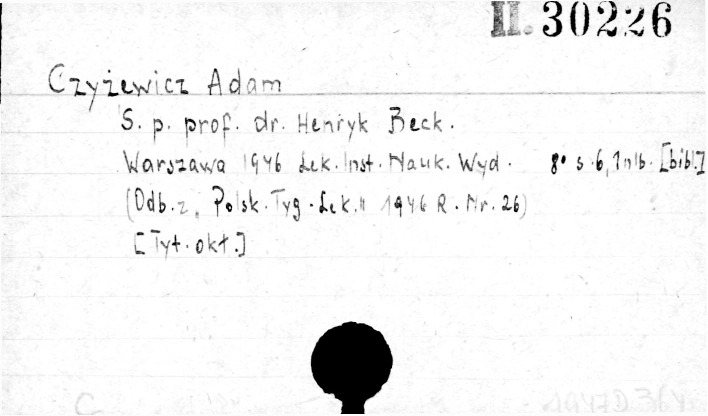 II. 30226
Czyżewicz Adam
S. p. prof. dr. Henryk Beck.
Warszawa 1946 Lek. Inst. Nauk. Wyd. 8° s. 6, 1 nlb. [bibl.]
(Odb. z „Polsk. Tyg. Lek." 1946 R. Nr. 26)
[Tyt. okł.]